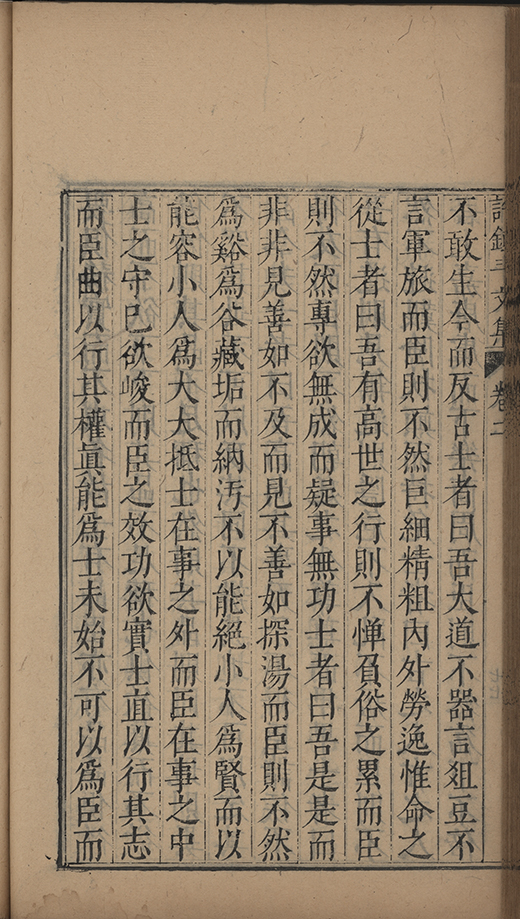 文集 卷二
不敢生今而反古士者曰吾大道不器言俎豆不
言軍旅而臣則不然巨細精粗內外勞逸惟命之
從士者曰吾有高世之行則不憚負俗之累而臣
則不然專欲無成而疑事無功士者曰吾是是而
非非見善如不及而見不善如探湯而臣則不然
爲谿爲谷藏垢而納汚不以能絕小人爲賢而以
能容小人爲大大抵士在事之外而臣在事之中
士之守已欲峻而臣之效功欲實士直以行其志
而臣曲以行其權眞能爲士未始不可以爲臣而